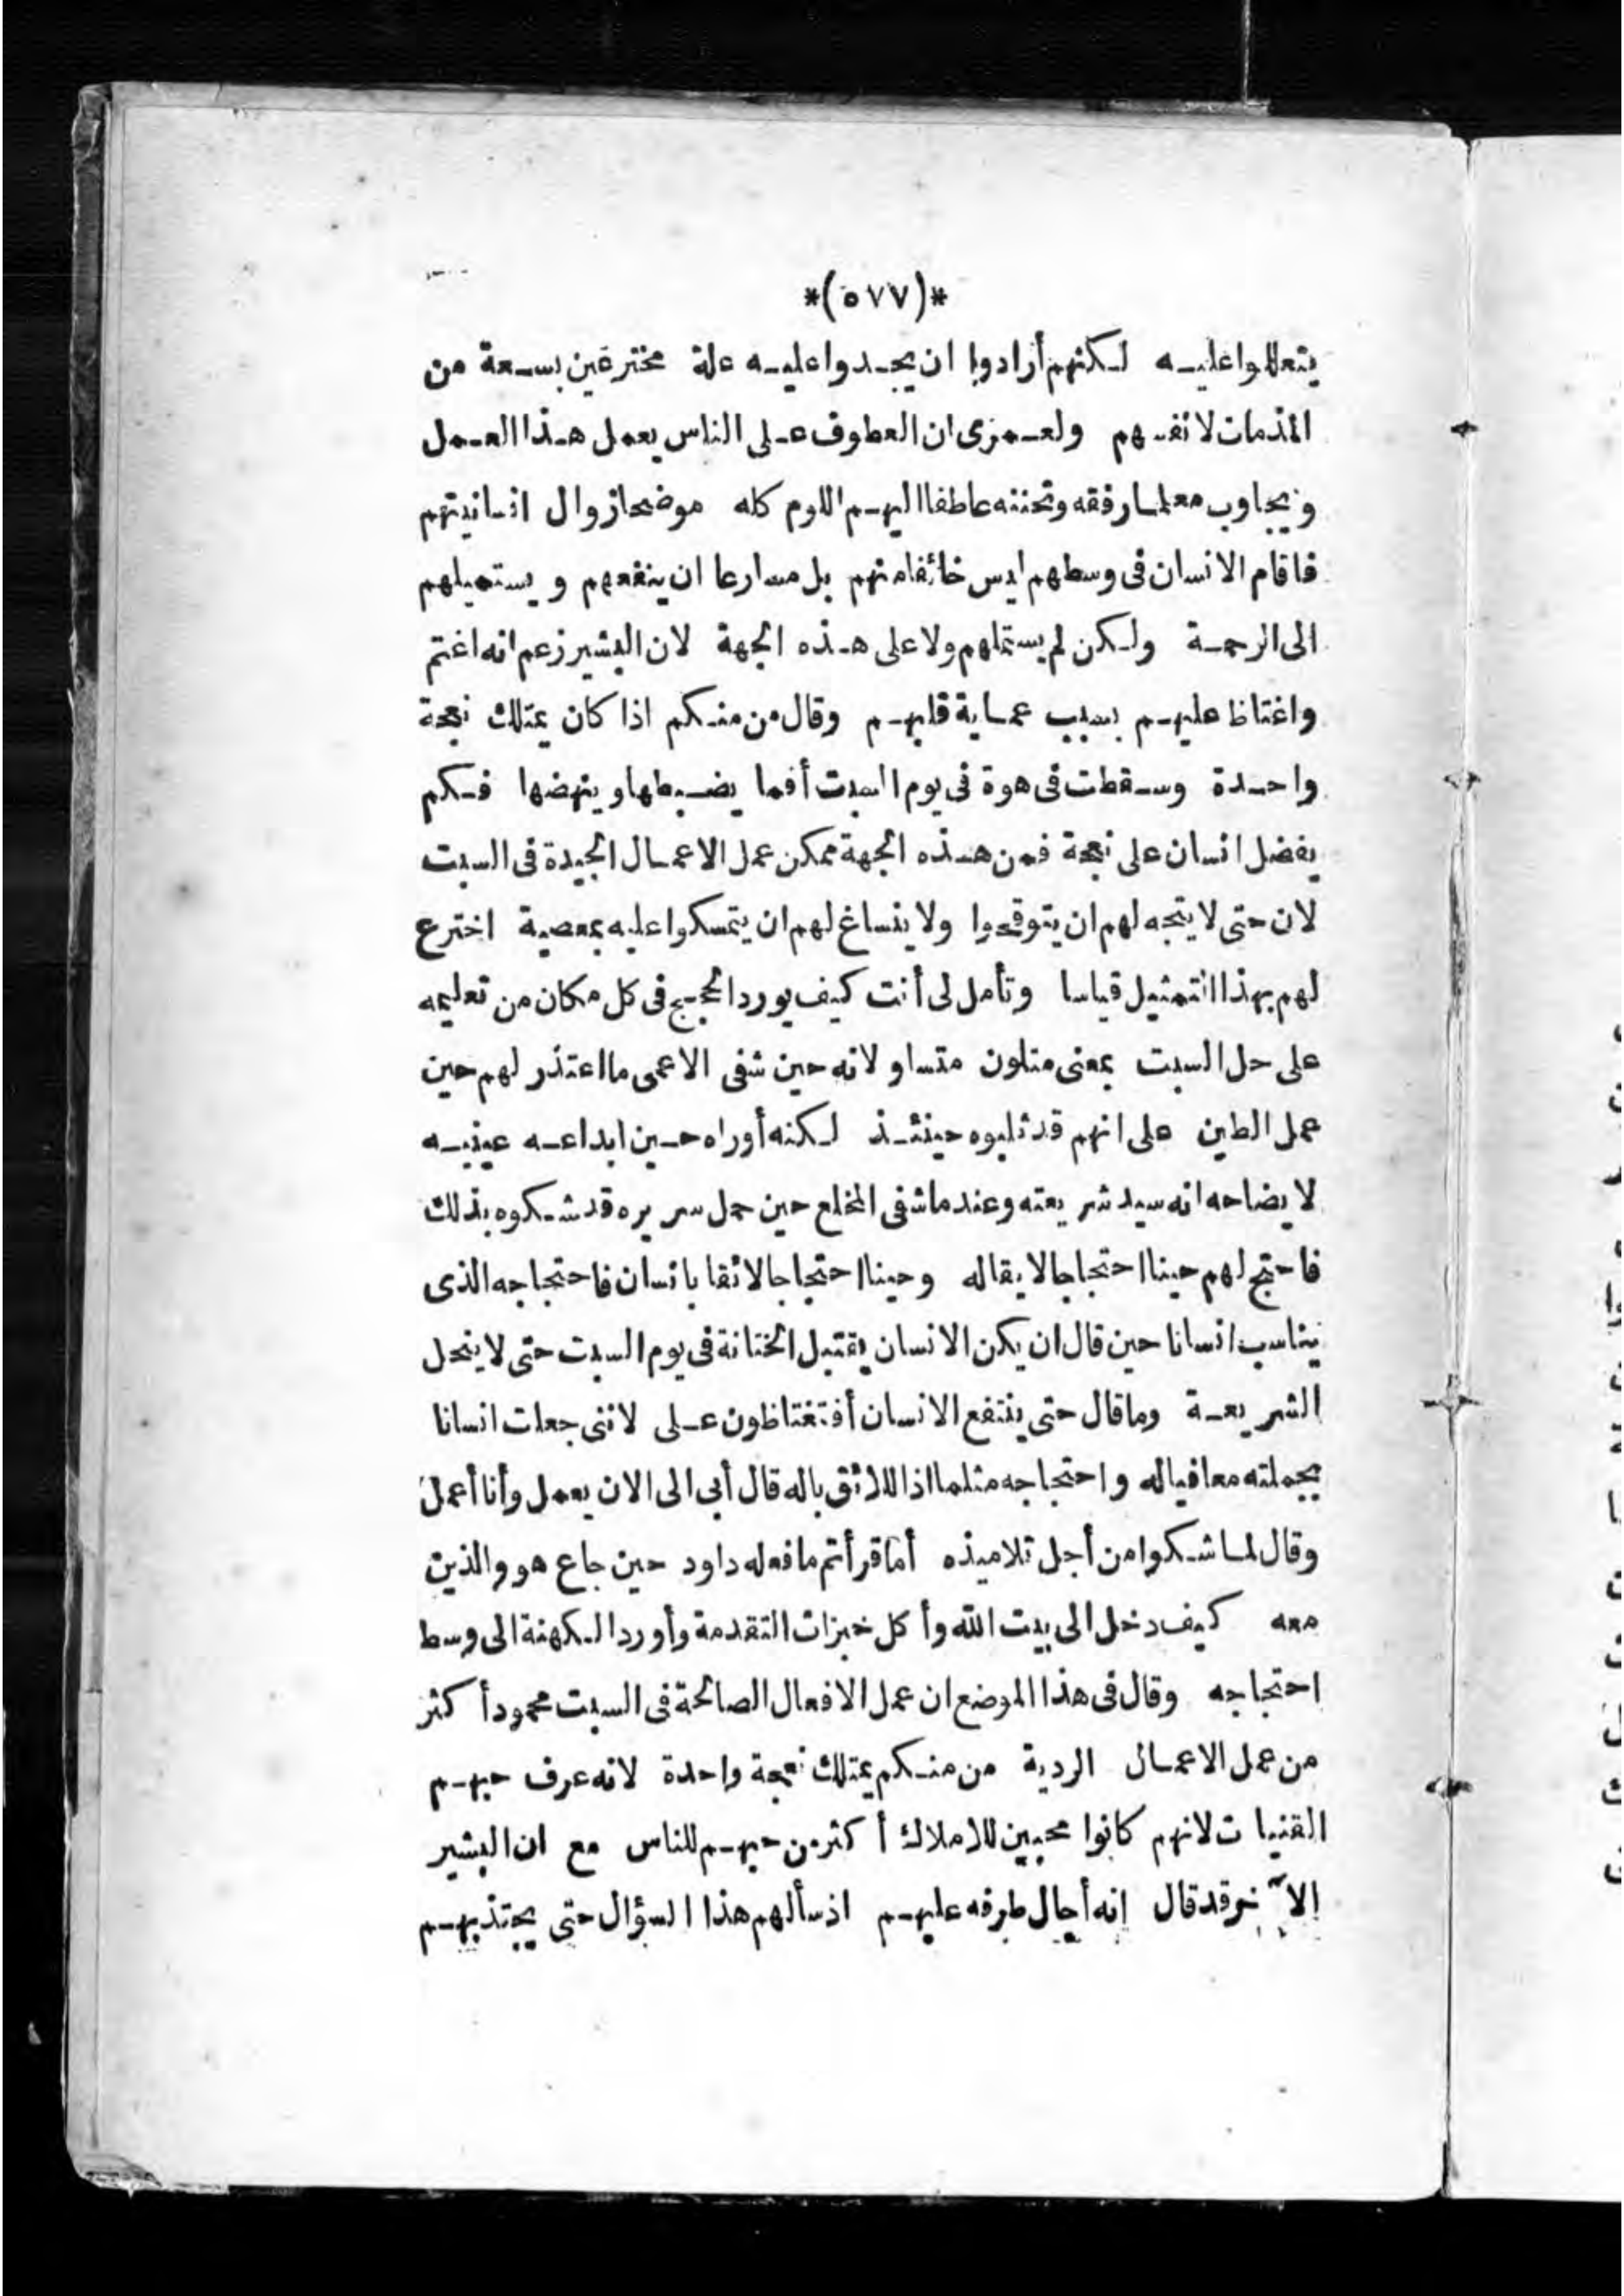 *(٥٧٧)*
يتعللوا عليه لكنهم أرادوا ان يجدوا عليه علة مخترعين بسعة من
المذمات لانفسهم ولعمرى ان العطوف على الناس يعمل هذا العمل
ويجاوب معلما رفقه وتحننه عاطفا اليهم اللوم كله موضحا زوال انسانيتهم
فاقام الانسان فى وسطهم ليس خائفا منهم بل مسارعا ان ينفعهم ويستميلهم
الى الرحمة ولكن لم يستملهم ولا على هذه الجهة لان البشير زعم انه اغتم
واغتاظ عليهم بسبب عماية قلبهم وقال من منكم اذا كان يمتلك نعجة
واحدة وسقطت فى هوة فى يوم السبت أفما يضبطها وينهضها فكم
يفضل انسان على نعجة فمن هذه الجهة ممكن عمل الاعمال الجيدة فى السبت
لان حتى لا يتجه لهم ان يتوقحوا ولا ينساغ لهم ان يتمسكوا عليه بمعصية اخترع
لهم بهذا التمثيل قياسا وتأمل لى أنت كيف يورد الحجج فى كل مكان من تعليمه
على حل السبت بمعنى متلون متساو لانه حين شفى الاعمى ما اعتذر لهم حين
عمل الطين على انهم قد ثلبوه حينئذ لكنه أوراه حين ابداعه عينيه
لايضاحه انه سيد شريعته وعندما شفى المخلع حين حمل سريره قد شكوه بذلك
فاحتج لهم حينا احتجاجا لايقا له وحينا احتجاجا لائقا بانسان فاحتجاجه الذى
يناسب انسانا حين قال ان يكن الانسان يقتبل الختانة فى يوم السبت حتى لا ينحل
الشريعة وما قال حتى ينتفع الانسان أفتغتاظون على لاننى جعلت انسانا
بجملته معافيا له واحتجاجه مثلما اذا اللائق باله قال أبى الى الان يعمل وأنا أعمل
وقال لما شكوا من أجل تلاميذه أما قرأتم ما فعله داود حين جاع هو والذين
معه كيف دخل الى بيت الله وأكل خبزات التقدمة وأورد الكهنة الى وسط
احتجاجه وقال فى هذا الموضع ان عمل الافعال الصالحة فى السبت محمود أكثر
من عمل الاعمال الردية من منكم يمتلك نعجة واحدة لانه عرف حبهم
القنيات لانهم كانوا محبين للاملاك أكثر من حبهم للناس مع ان البشير
الآخر قد قال انه أجال طرفه عليهم اذ سألهم هذا السؤال حتى يجتذبهم